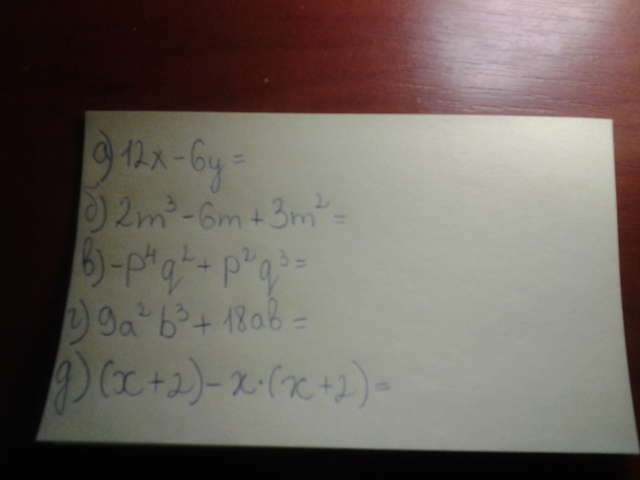 а) 12x - 6y =
б) 2m³ - 6m + 3m² =
в) -p⁴q² + p²q³ =
г) 9a²b³ + 18ab =
д) (x + 2) - x·(x + 2) =